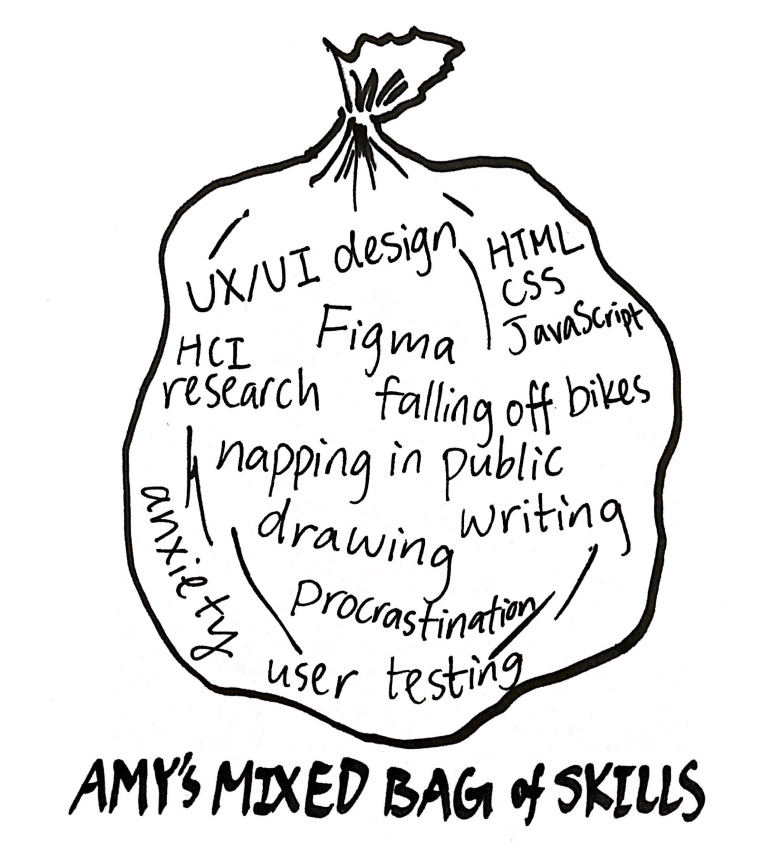 UX/UI design
HTML
CSS
JavaScript
Figma
HCI
research
falling off bikes
napping in public
anxiety
drawing
writing
procrastination
user testing
AMY's MIXED BAG of SKILLS